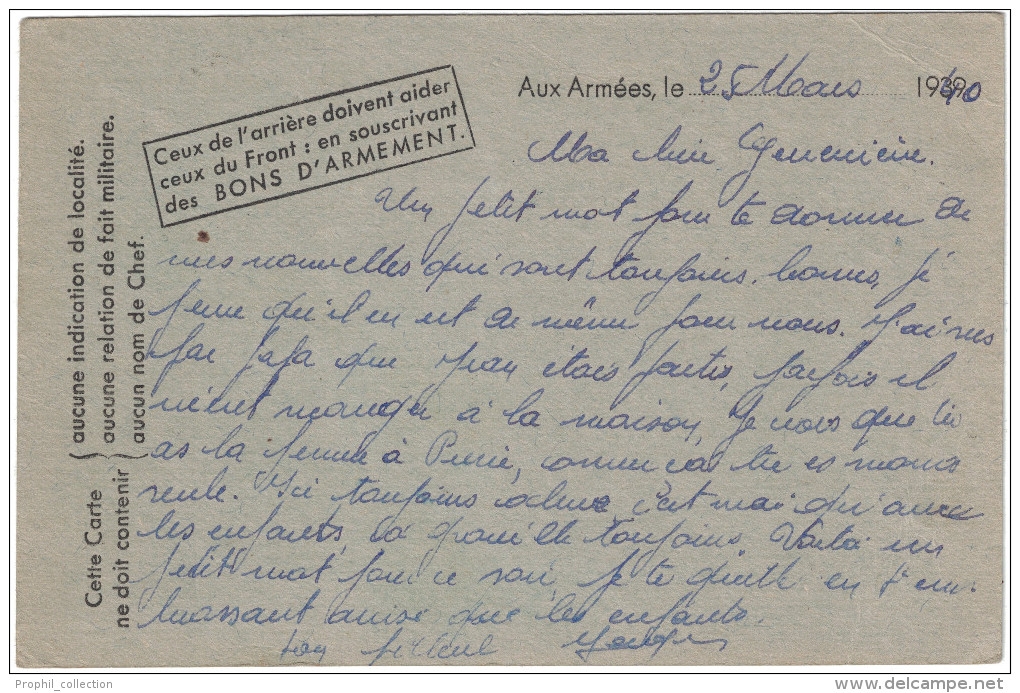 Aux Armées, le 25 Mars 1940
Ceux de l'arrière doivent aider
ceux du Front : en souscrivant
des BONS D'ARMEMENT.
Cette Carte
ne doit contenir
aucune indication de localité.
aucune relation de fait militaire.
aucun nom de Chef.
Ma Geneviève.
Un petit mot pour te donner de
mes nouvelles qui sont toujours bonnes, je
pense qu'il en est de même pour vous. J'ai vus
par papa que étais partis, parfois il
vient manger à la maison, Je vois que tu
as la femme à comme ça tu es moins
seule. Ici toujours c'est moi qu'avec
les enfants, ça toujours. Voilà un
petit mot pour ce soir, je te quitte en t'em-
brassant ainsi que les enfants.
ton filleul
Prophil_collection
www.delcampe.net